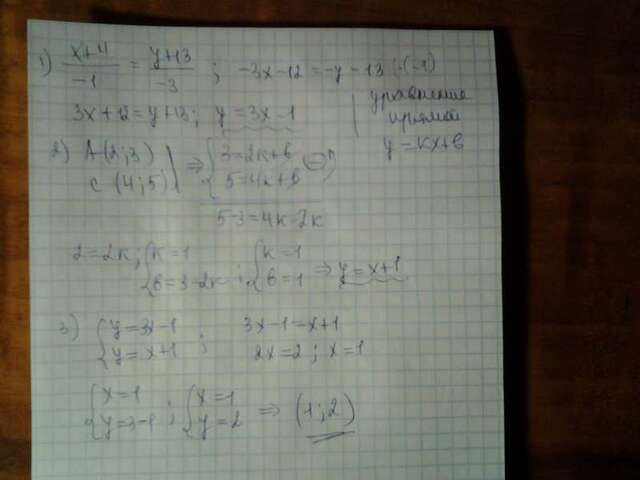 1) (x+4)/(-1) = (y+13)/(-3) ; -3x-12=-y-13 |·(-1)
3x+12=y+13; y=3x-1
уравнение
прямой
y=kx+b
2) A(2;3)
C(4;5) ⇒ { 3=2k+b
5=4k+b (-)
5-3=4k-2k
2=2k; { k=1
b=3-2k ; { k=1
b=1 ⇒ y=x+1
3) { y=3x-1
y=x+1 ;
3x-1=x+1
2x=2; x=1
{ x=1
y=3-1 ; { x=1
y=2 ⇒ (1;2)